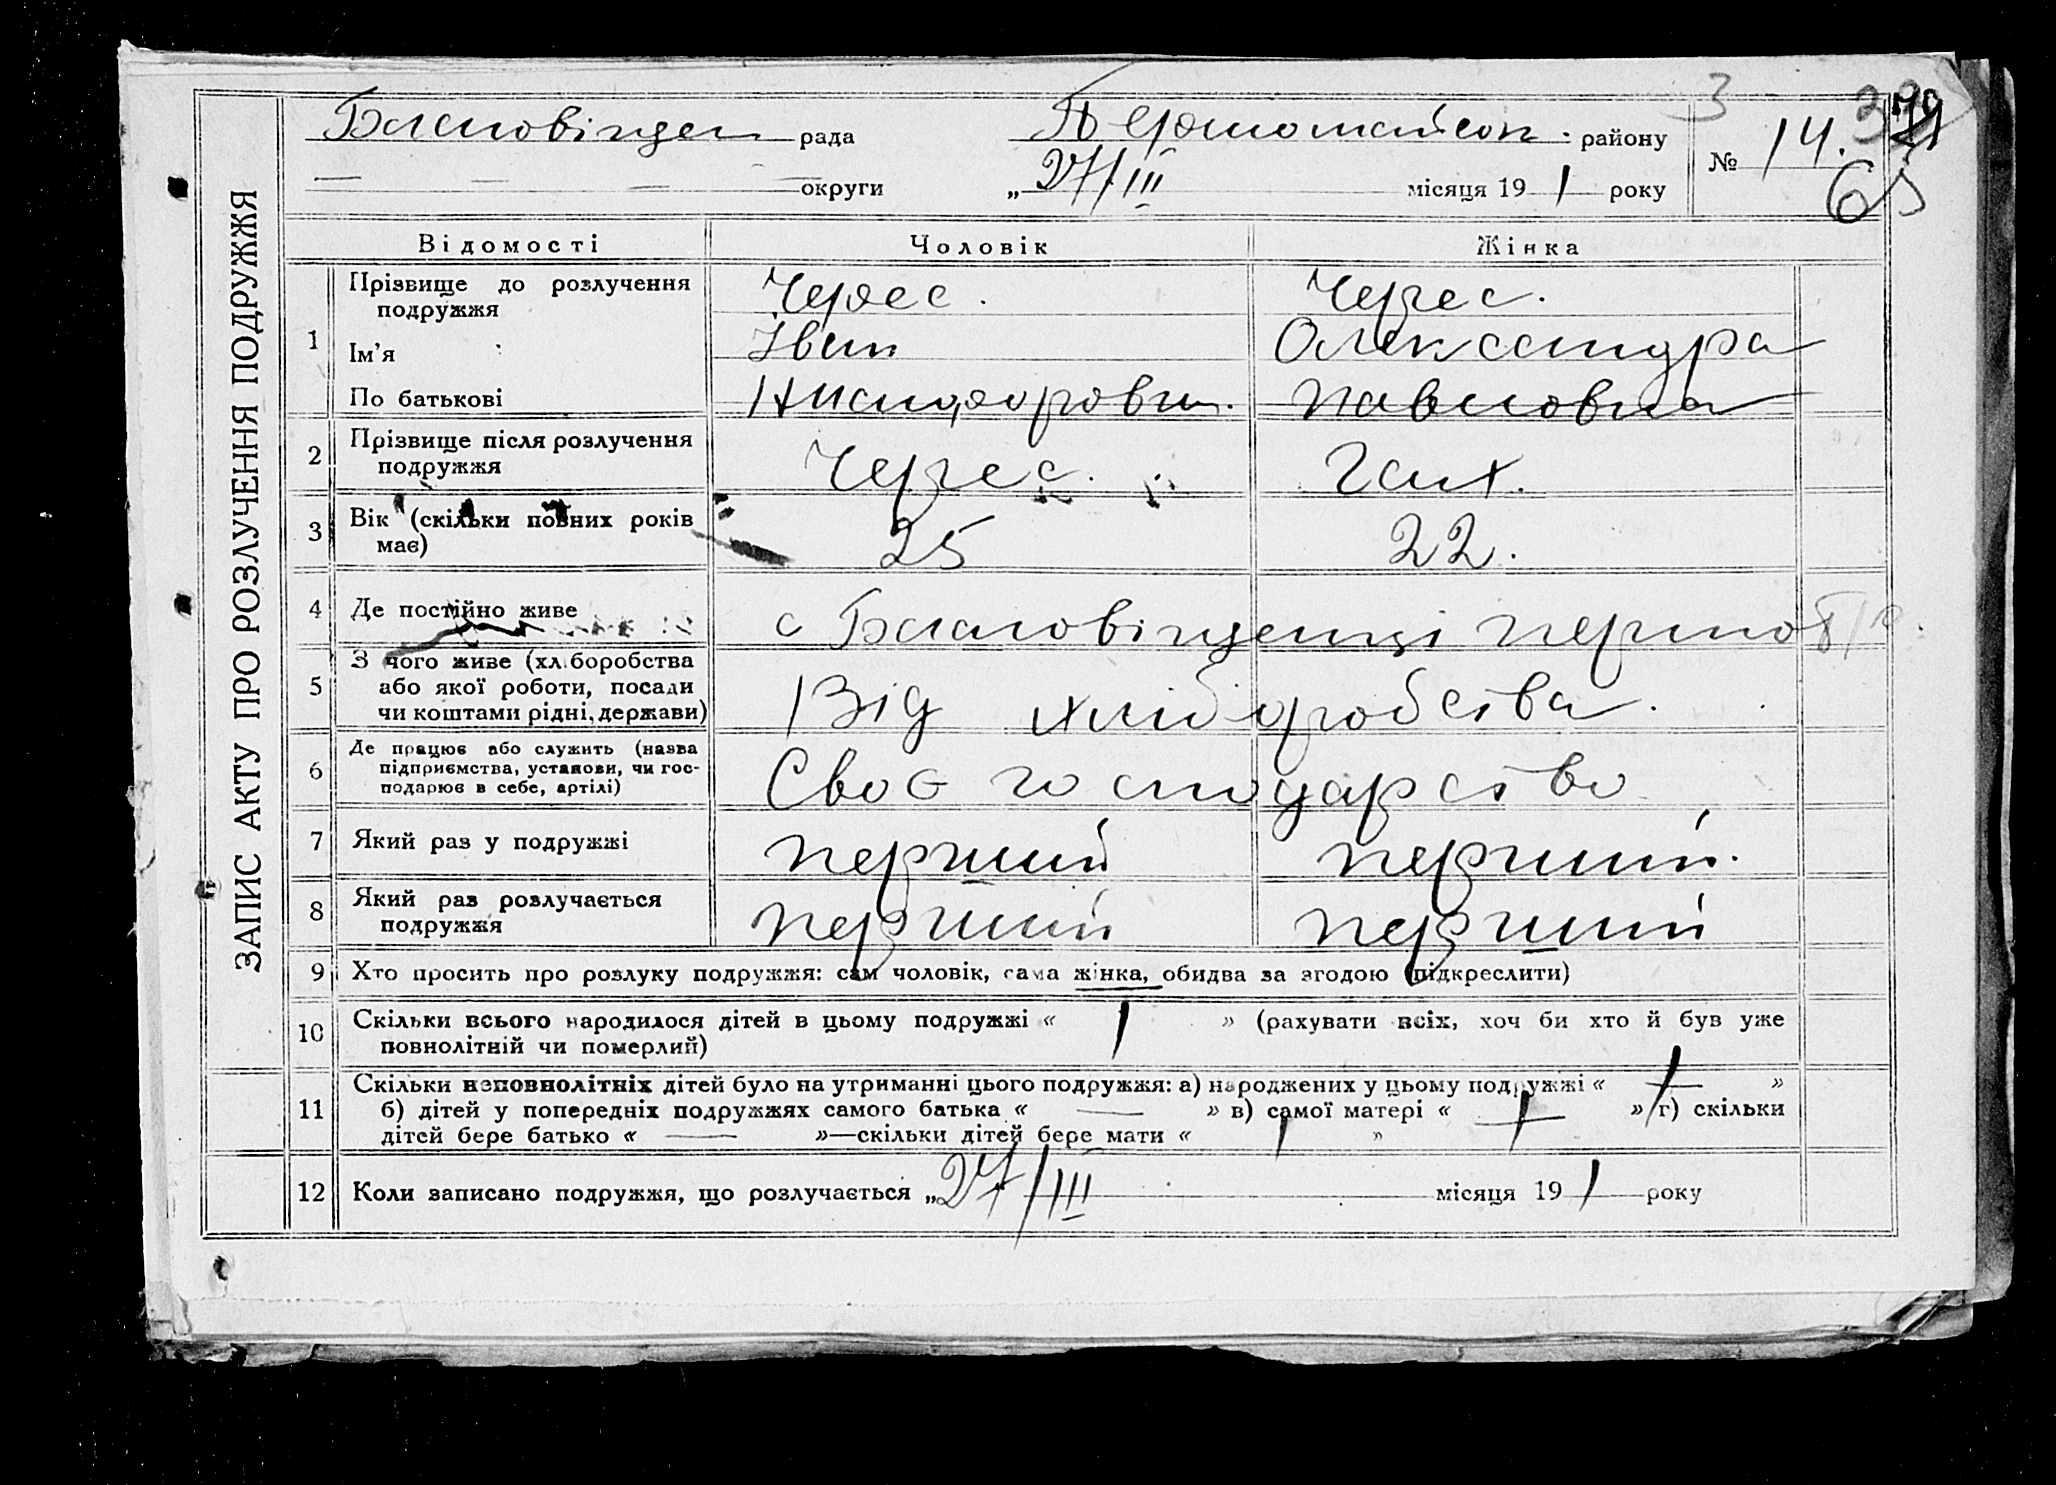 ЗАПИС АКТУ ПРО РОЗЛУЧЕННЯ ПОДРУЖЖЯ
рада Первомайськ. району № 14.
— — — округи „27/III місяця 19 1 року
65
Відомості Чоловік Жінка
1 Прізвище до розлучення подружжя Черес. Черес.
Ім'я Іван Олександра
По батькові Никанорович. Павловна
2 Прізвище після розлучення подружжя Черес. Гах.
3 Вік (скільки повних років має) 25 22.
4 Де постійно живе с
5 З чого живе (хліборобства або якої роботи, посади чи коштами рідні, держави) Від хліборобства.
6 Де працює або служить (назва підприємства, установи, чи господарює в себе, артілі) Своє господарство
7 Який раз у подружжі перший перший.
8 Який раз розлучається подружжя перший перший
9 Хто просить про розлуку подружжя: сам чоловік, сама жінка, обидва за згодою (підкреслити)
10 Скільки всього народилося дітей в цьому подружжі « 1 » (рахувати всіх, хоч би хто й був уже
повнолітній чи померлий)
11 Скільки неповнолітніх дітей було на утриманні цього подружжя: а) народжених у цьому подружжі « 1 »
б) дітей у попередніх подружжях самого батька « — » в) самої матері « — » г) скільки
дітей бере батько « — »—скільки дітей бере мати « 1 »
12 Коли записано подружжя, що розлучається „27/III місяця 19 1 року